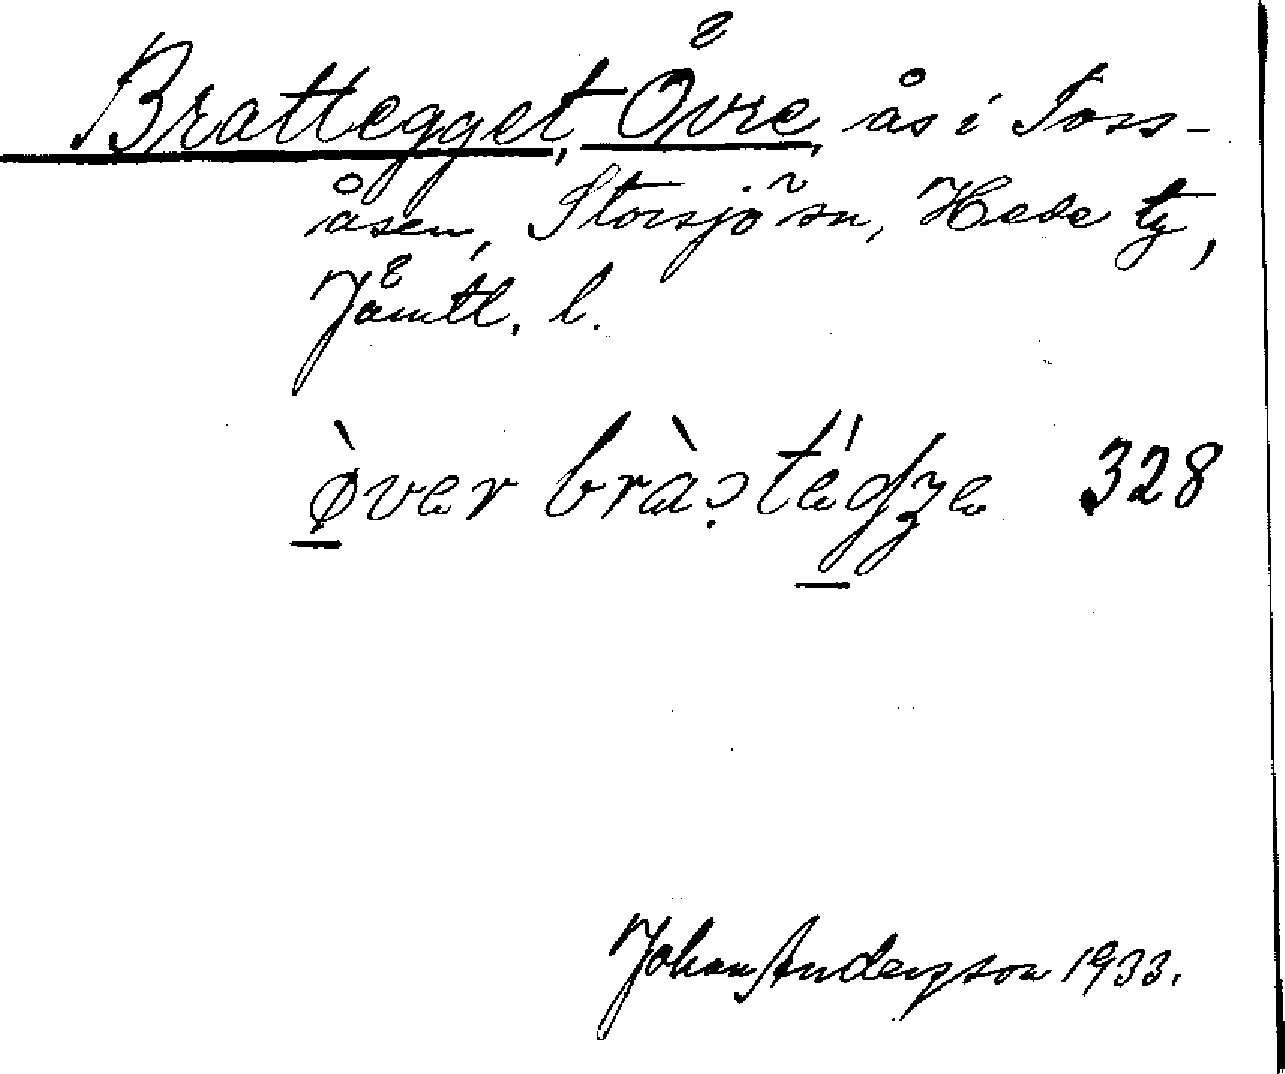 Brattegget, Övre, ås i Toss-
åsen, Storsjö sn, Hede tg,
Jämtl. l.
òver bràtédʒe 328
Johan Andersson 1933.